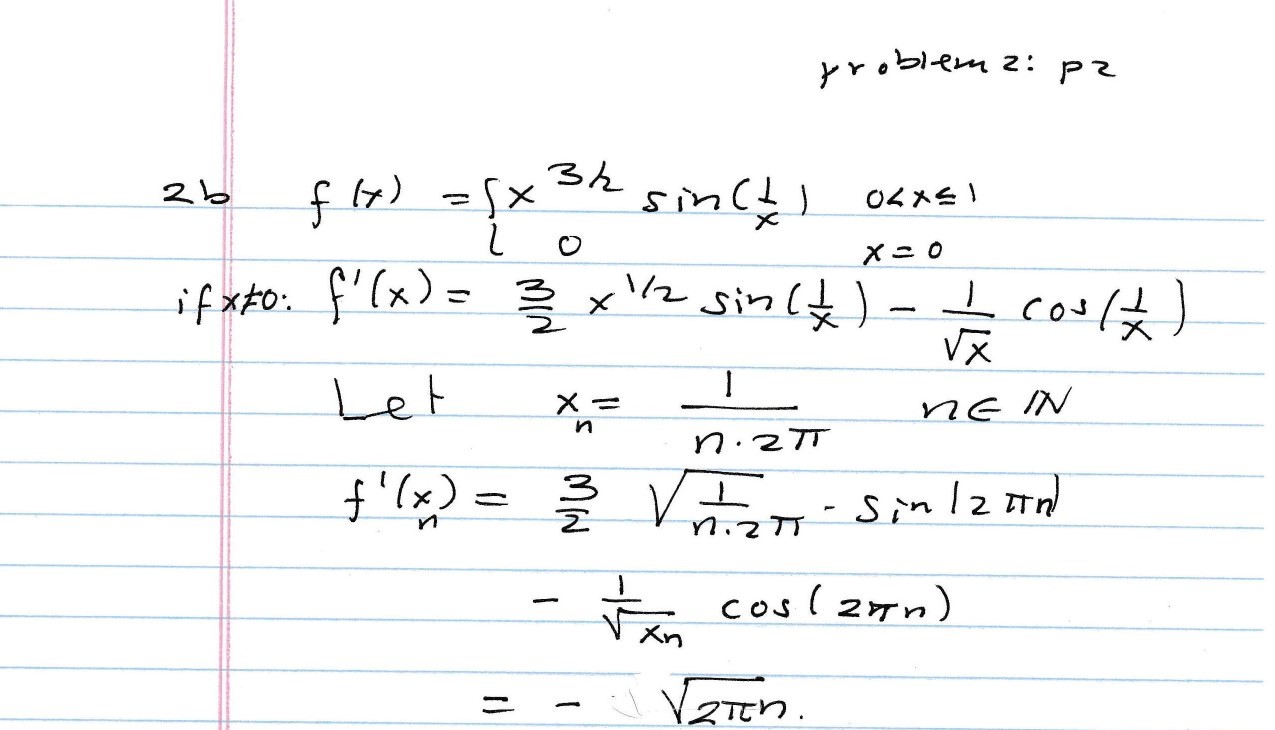 problem 2: p2
2b f(x) = { x^{3/2} sin(1/x) 0<x≤1
0 x=0
if x≠0: f'(x) = 3/2 x^{1/2} sin(1/x) - 1/√x cos(1/x)
Let x_n = 1/(n·2π) n∈ℕ
f'(x_n) = 3/2 √(1/(n·2π)) · sin(2πn)
- 1/√x_n cos(2πn)
= - √(2πn).